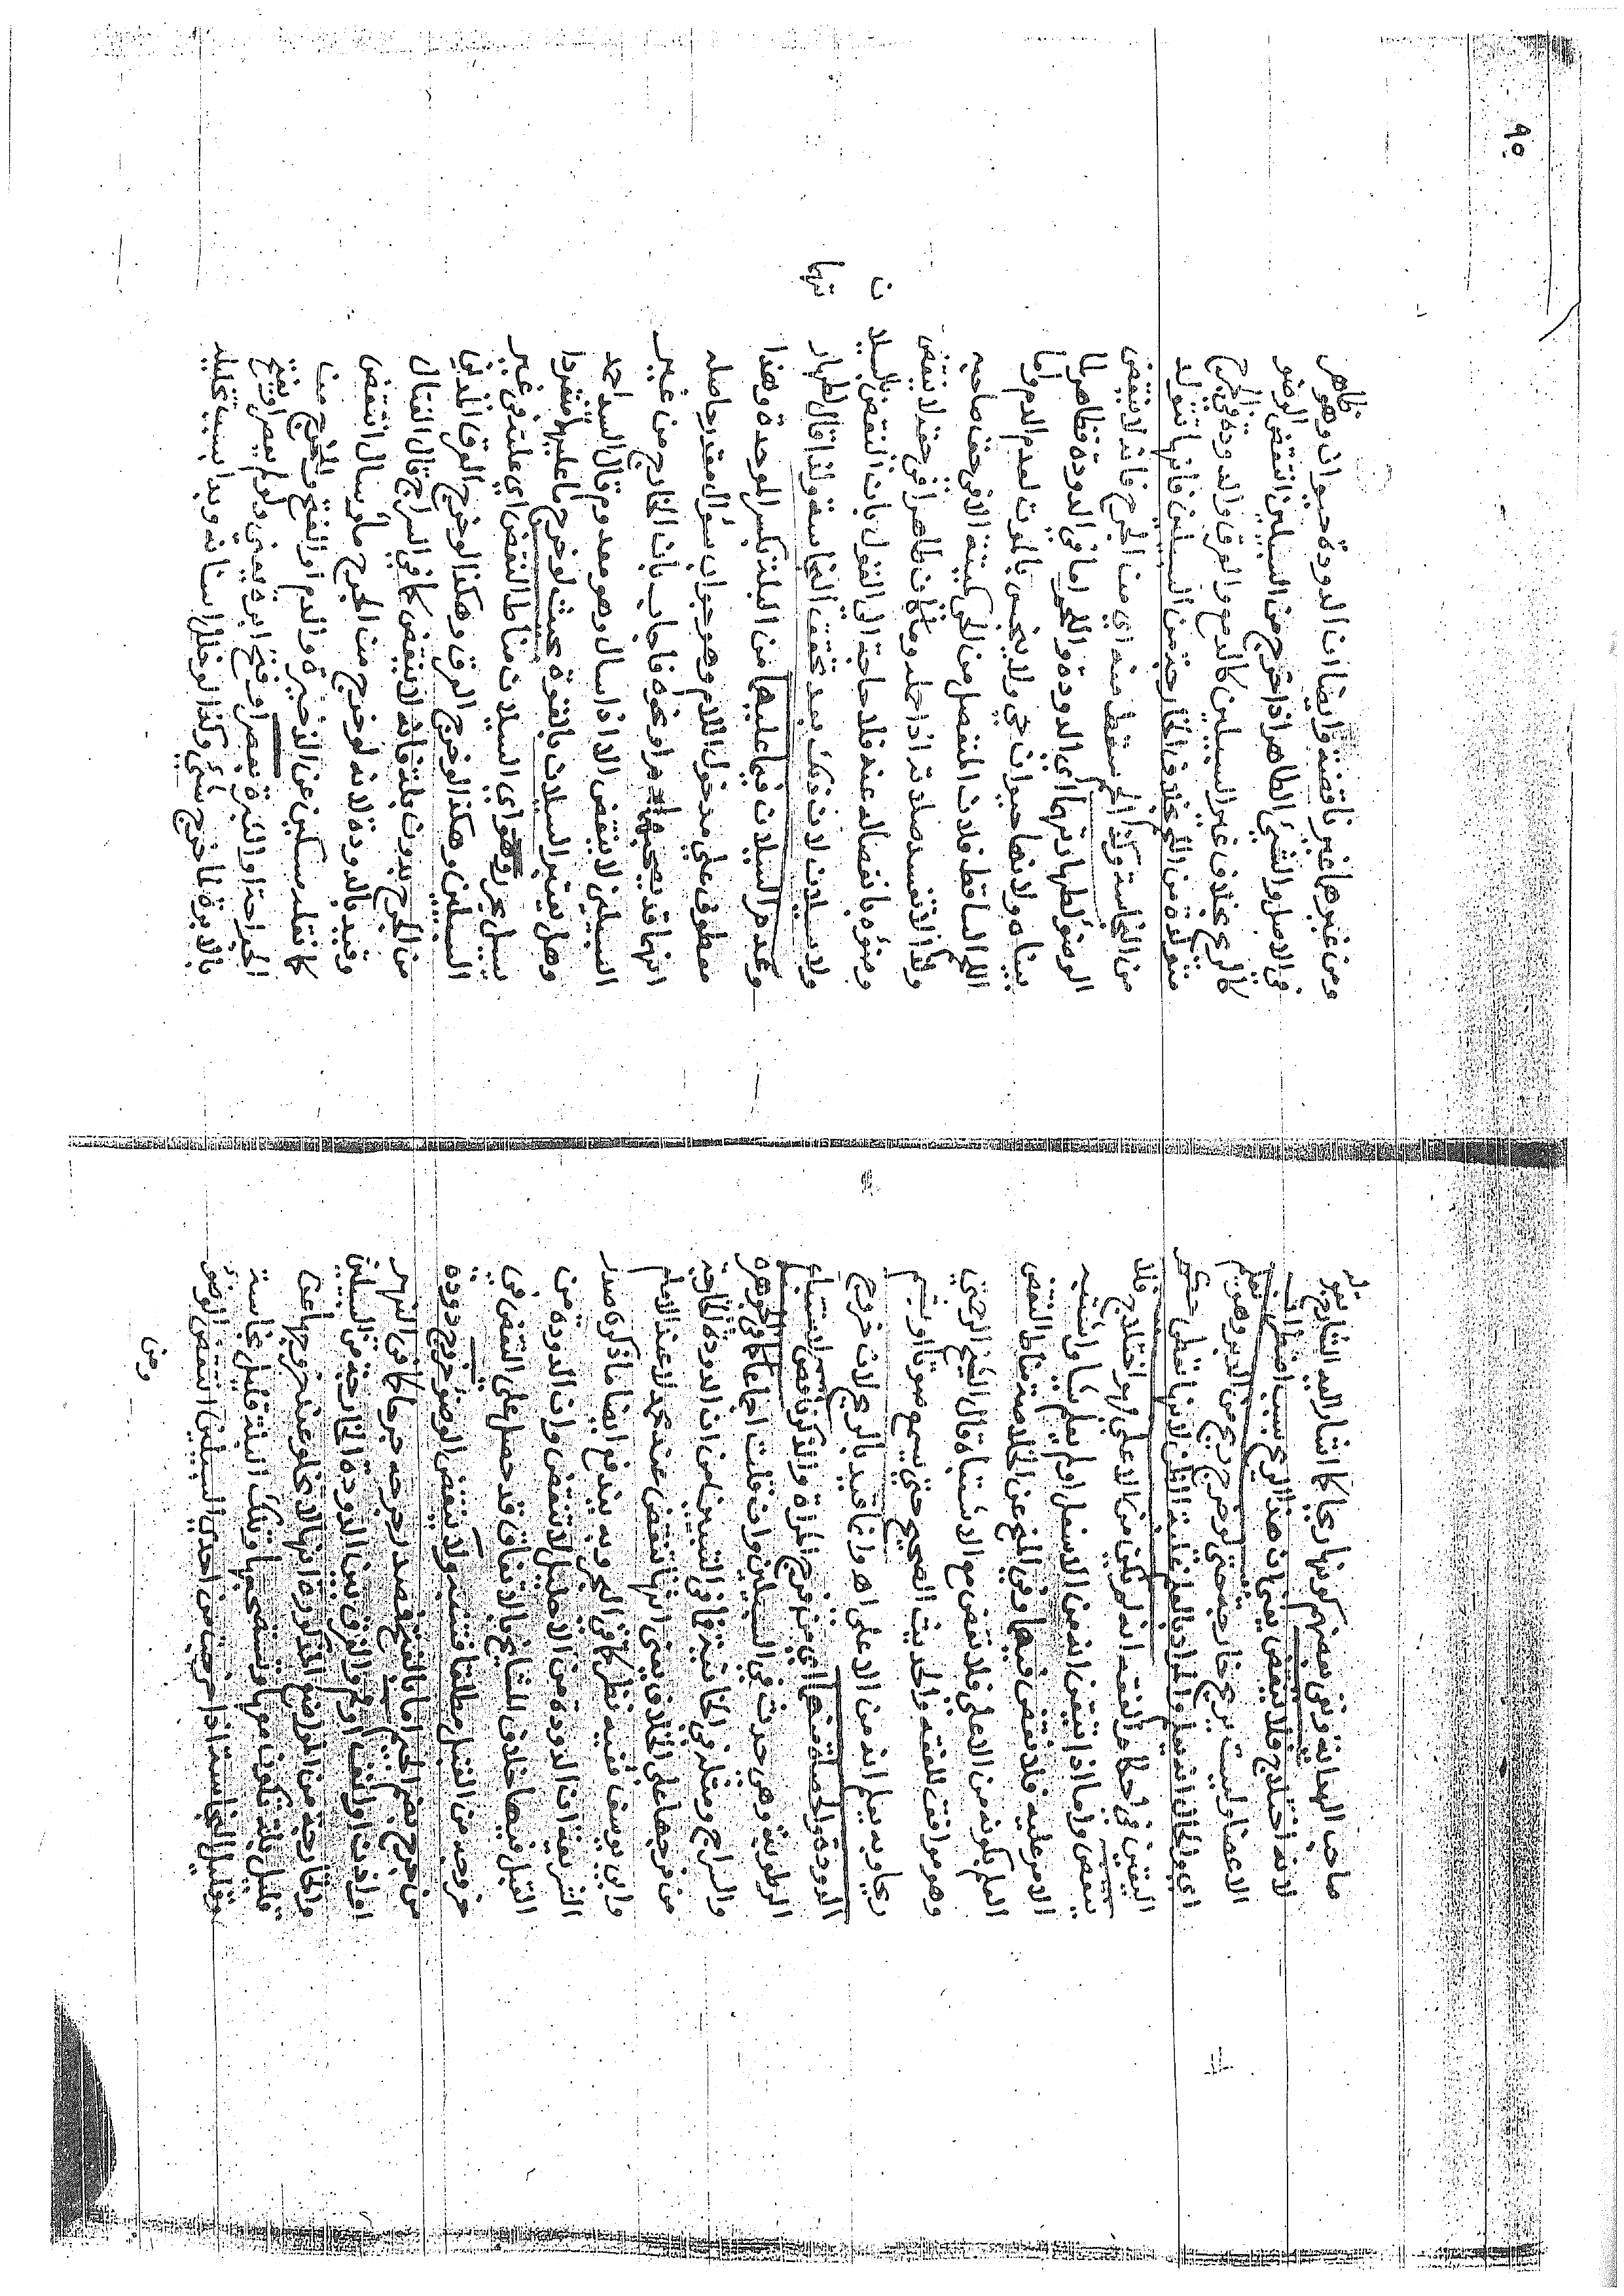 صاحب الهداية ونفى بعضهم كونها ريحا كما اشار اليه الشارح بقوله
لانه اختلاج فلا ينقض يعني ان هذا الريح بسبب اضطراب
الاعضا وليست بريح خارجة حتى لو خرج ريح من الدبر وهو يعلم
انه لم يكن من الاعلى فهو اختلاج فلا
ينقض واما اذا تيقن انه من الاسفل او لم يعلم بشا واشتبه
الامر عليه فلا تنقض فيها وفي المنح عن الخلاصة مناط النقض
العلم بكونه من الاعلى فلا نقض مع الاشتباه قال الشيخ الرحمتي
وهو موافق للفقه والحديث الصحيح حتى يسمع صوتا او يشم
ريحا وبه يعلم انه من الاعلى اهـ وانما قيد بالريح لان خروج
الدودة والحصاة منهما اي من فرج المراة والذكر ناقض
والسراج ومثله في الخانية
من فرجها على الخلاف يعني انها تنقض عند محمد لا عند الامام
وابي يوسف ففيه نظر كما في البحر وبه يندفع ايضا ما ذكره صدر
الشريعة ان الدودة من الاحليل لا تنقض وان الدودة من
القبل فيها خلاف المشايخ بالاتفاق قد حصل على النقض في
خروجه من القبل مطلقا فتنبه ولا ينقض الوضؤ خروج دودة
من جرح بضم الجيم اما بالفتح فمصدر جرحه جرحا كما في النهر
او اذن او انف او فم والفرق بين الدودة الخارجة من السبيلين
والخارجة من المواضع المذكورة انها لا تخلو عند خروجها عن
قليل بلة تكون معها وتستصحبها وتلك البلة قليل نجاسة
وقليل النجاسة اذا خرجت من احدى السبيلين انتقض الوضؤ
ومن
٩٠
ومن غيرها غير ناقضة وايضا ان الدودة حيوان وهو طاهر
في الاصل والشيئ الطاهر اذا خرج من السبيلين انتقض الوضؤ
كالريح بخلاف غير السبيلين كالدمع والعرق والدودة في الجرح
متولدة من اللحم بخلاف الخارجة من السبيلين فانها متولدة
من النجاسة وكذا لحم سقط منه اي من الجرح فانه لا ينقض
الوضؤ لطهارتهما اي الدودة واللحم اما في الدودة فظاهر لما
بيناه ولانها حيوان حي ولا ينجس بالموت لعدم الدم واما
اللحم الساقط فلان المنفصل من الحي كميتته الا في حق صاحبه
ولذا لا تفسد صلاته اذا حمله وما كان طاهرا في حقه لا ينتقض
وضؤه بانفصاله عنه فلا حاجة الى القول بان النقض بالسيلان
ولا سيلان لان ذلك بعد تحقق النجاسة ولذا قال لطهارتهما
وعدم السيلان فيما عليهما من البلة بكسر الموحدة وهذا
معطوف على مدخول اللام وهو جواب سؤال مقدر حاصله
انها قد يصحبها دم او نحوه فاجاب بان الخارج من غير
السبيلين لا ينقض الا اذا سال وهو معدوم قال السيد احمد
وهل يعتبر السيلان بالقوة بحيث لو خرج ما عليها منفردا
يسيل يحرر وهو اي السيلان مناط النقض اي علته في غير
السبيلين وهكذا لو خرج العرق وهكذا لو خرج العرق المدني
من الجرح بدون بلة فانه لا ينقض كما في السراج قال القتال
وقيد بالدودة لانه لو خرج من الجرح ماء وسال انتقض
كما نقله مسكين عن الذخيرة والدم او القيح والمخرج من
الجراحة او النفطة بعصر او وفتح ابرة يعني ولو لم يعصر او يفتح
بالابرة لما خرج شيئ وكذا لو خلل اسنانه وبدا بسبب تخليله